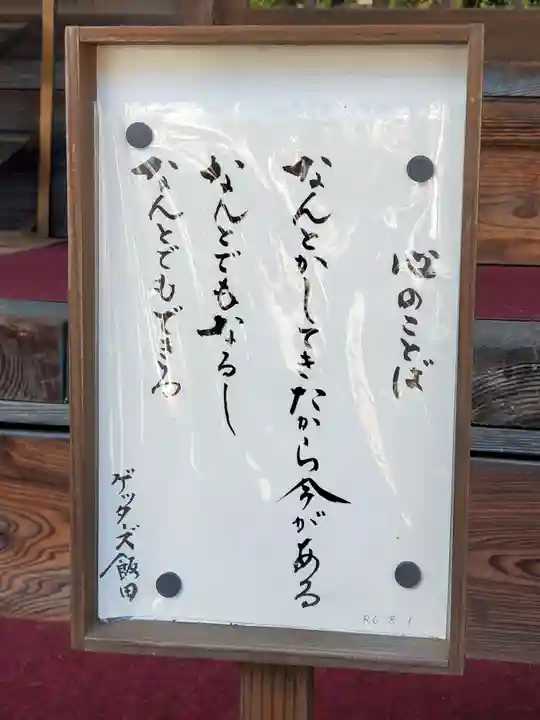 心のことば
なんとかしてきたから今がある
なんとでもなるし
なんとでもできる
ゲッターズ飯田
R6.8.1